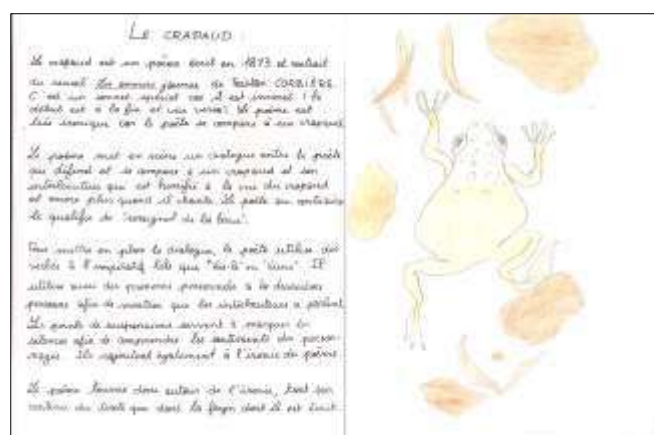 LE CRAPAUD :
Le crapaud est un poème écrit en 1873 et extrait
du recueil Les amours jaunes de Tristan CORBIÈRE.
C'est un sonnet spécial car il est inversé : le
début est à la fin et vice versa. Le poème est
très ironique car le poète se compare à un crapaud.
Le poème met en scène un dialogue entre le poète
qui défend et se compare à un crapaud et son
interlocuteur qui est horrifié à la vue du crapaud
et encore plus quand il chante. Le poète au contraire
le qualifie de "rossignol de la boue".
Pour mettre en place le dialogue, le poète utilise des
verbes à l'impératif tels que "vois-tu" ou "viens". Il
utilise aussi des pronoms personnels à la deuxième
personne afin de montrer que les interlocuteurs se parlent.
Les points de suspensions servent à marquer les
silences afin de comprendre les sentiments des person-
nages. Ils rajoutent également à l'ironie du poème.
Le poème tourne donc autour de l'ironie, tant son
contenu du texte que dans la façon dont il est écrit.